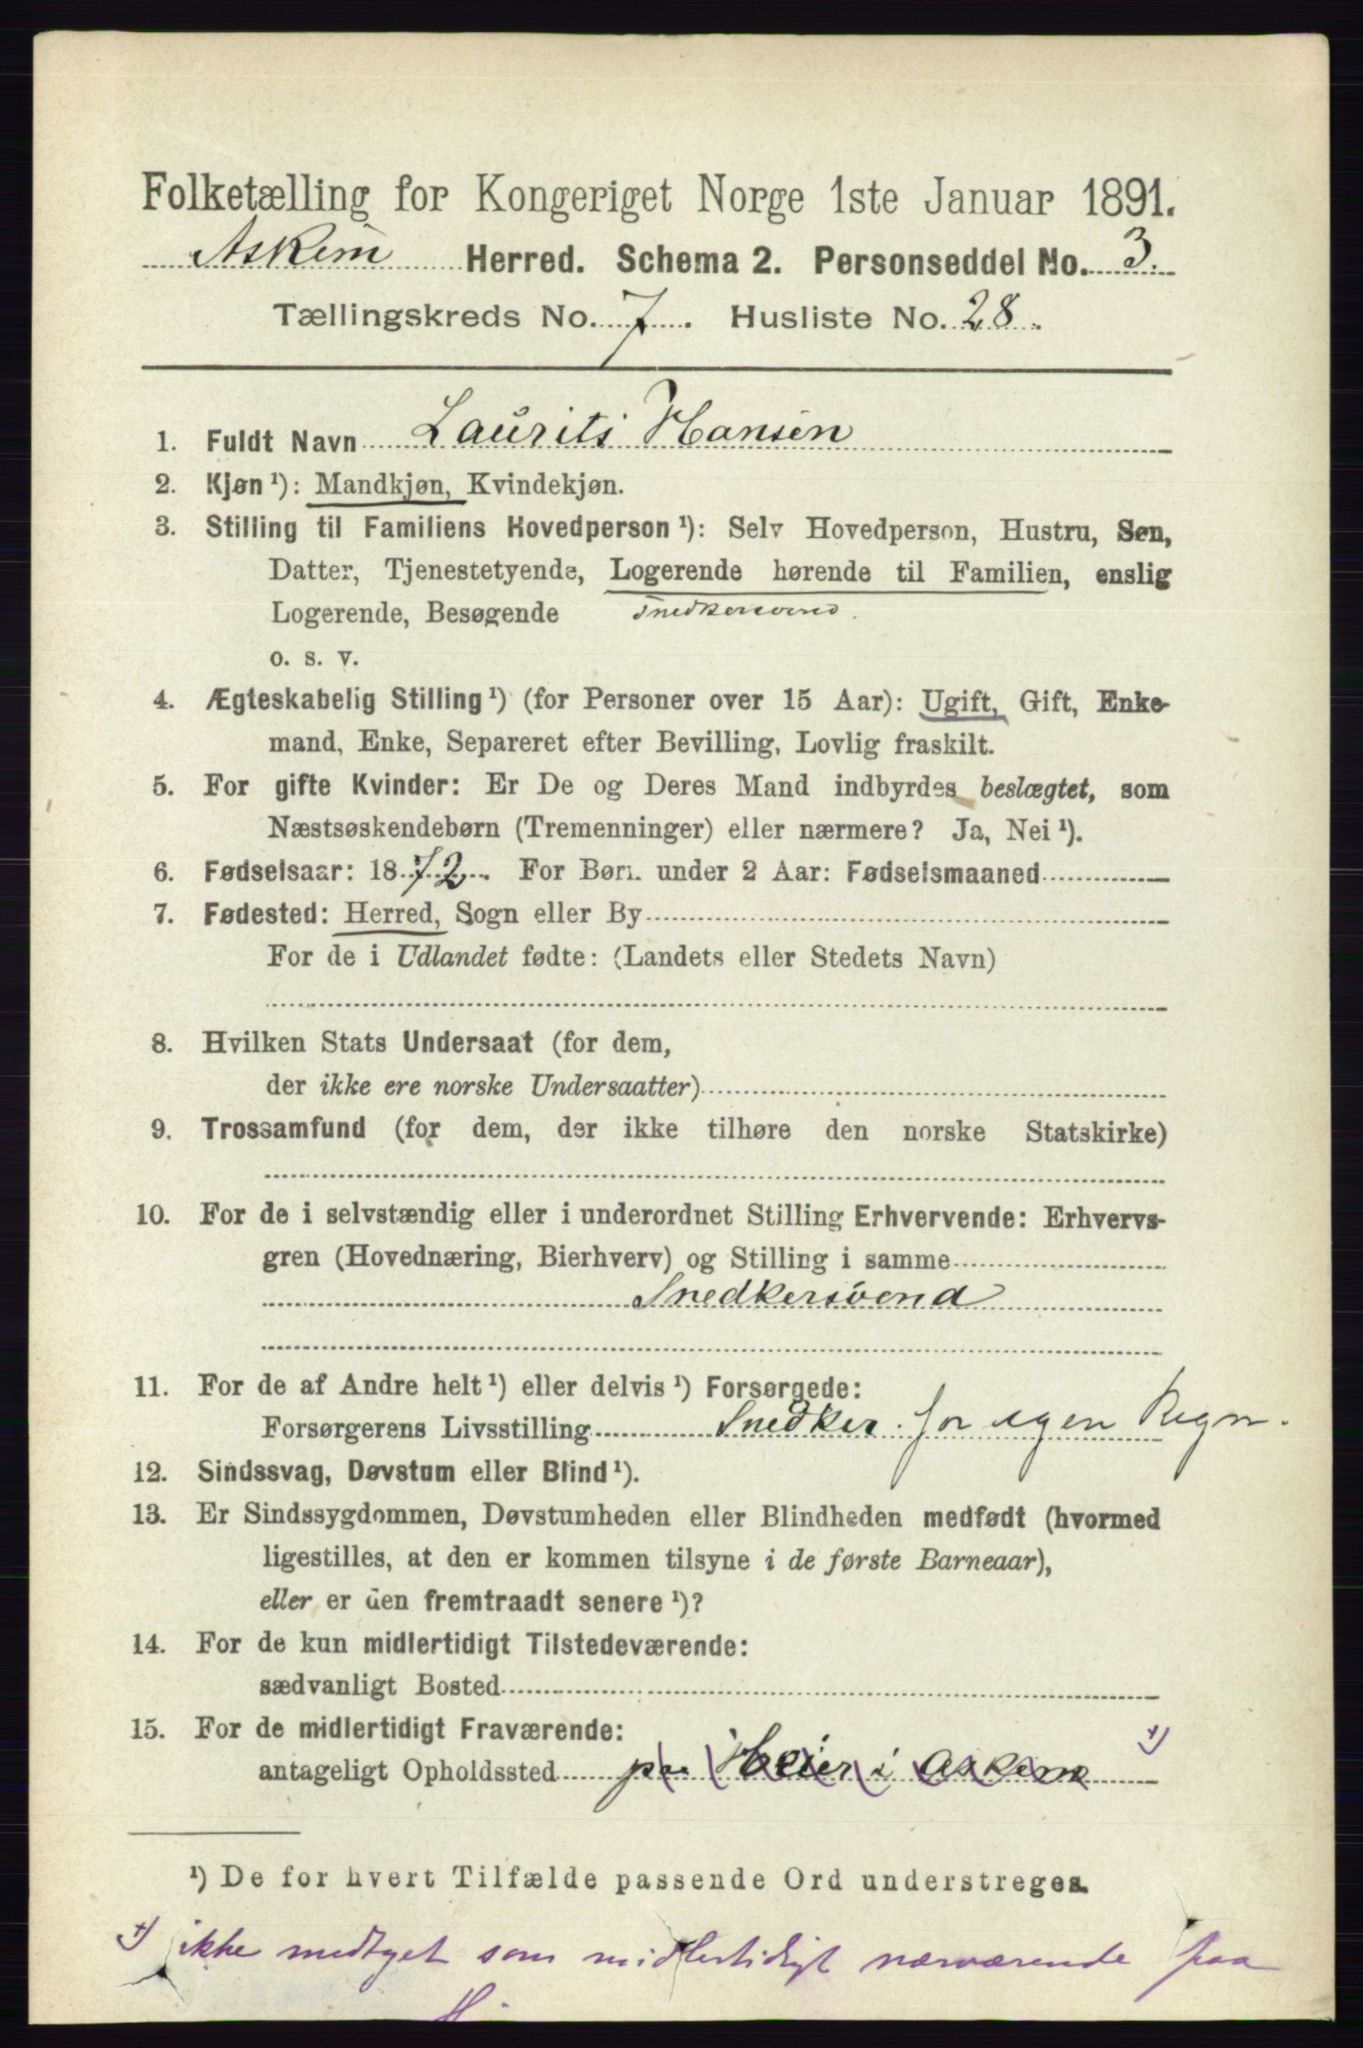 Folketælling for Kongeriget Norge 1ste Januar 1891.
Askim Herred. Schema 2. Personseddel No. 3.
Tællingskreds No. 7. Husliste No. 28.
1. Fuldt Navn Laurits Hansen
2. Kjøn ¹): Mandkjøn, Kvindekjøn.
3. Stilling til Familiens Hovedperson ¹): Selv Hovedperson, Hustru, Søn,
Datter, Tjenestetyende, Logerende hørende til Familien, enslig
Logerende, Besøgende Snedkersvend.
o. s. v.
4. Ægteskabelig Stilling ¹) (for Personer over 15 Aar): Ugift, Gift, Enke-
mand, Enke, Separeret efter Bevilling, Lovlig fraskilt.
5. For gifte Kvinder: Er De og Deres Mand indbyrdes beslægtet, som
Næstsøskendebørn (Tremenninger) eller nærmere? Ja, Nei ¹).
6. Fødselsaar: 1872. For Børn under 2 Aar: Fødselsmaaned
7. Fødested: Herred, Sogn eller By
For de i Udlandet fødte: (Landets eller Stedets Navn)
8. Hvilken Stats Undersaat (for dem,
der ikke ere norske Undersaatter)
9. Trossamfund (for dem, der ikke tilhøre den norske Statskirke)
10. For de i selvstændig eller i underordnet Stilling Erhvervende: Erhvervs-
gren (Hovednæring, Bierhverv) og Stilling i samme
Snedkersvend
11. For de af Andre helt ¹) eller delvis ¹) Forsørgede:
Forsørgerens Livsstilling Snedker for egen Regn.
12. Sindssvag, Døvstum eller Blind ¹).
13. Er Sindssygdommen, Døvstumheden eller Blindheden medfødt (hvormed
ligestilles, at den er kommen tilsyne i de første Barneaar),
eller er den fremtraadt senere ¹)?
14. For de kun midlertidigt Tilstedeværende:
sædvanligt Bosted
15. For de midlertidigt Fraværende:
antageligt Opholdssted paa Heier i Askim +)
¹) De for hvert Tilfælde passende Ord understreges.
+) ikke medtaget som midlertidigt nærværende paa